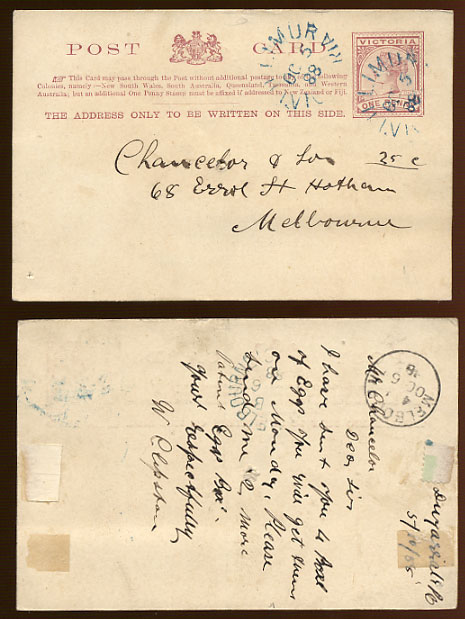 POST CARD
VICTORIA
ONE PENNY
This Card may pass through the Post without additional postage to the following
Colonies, namely:—New South Wales, South Australia, Queensland, Tasmania, and Western
Australia; but an additional One Penny Stamp must be affixed if addressed to New Zealand or Fiji.
THE ADDRESS ONLY TO BE WRITTEN ON THIS SIDE.
OC 5
88
VIC
Chancelor & Son 25 c
68 Errol St Hotham
Melbourne
MELBO
4
OC 6
88
5/10/88
Mr Chancelor
Dear Sir
I have sent you 4 
of Eggs you will get them
on Monday. Please
send me 2 more
patent Egg Box
yours respectfully
W Clapton